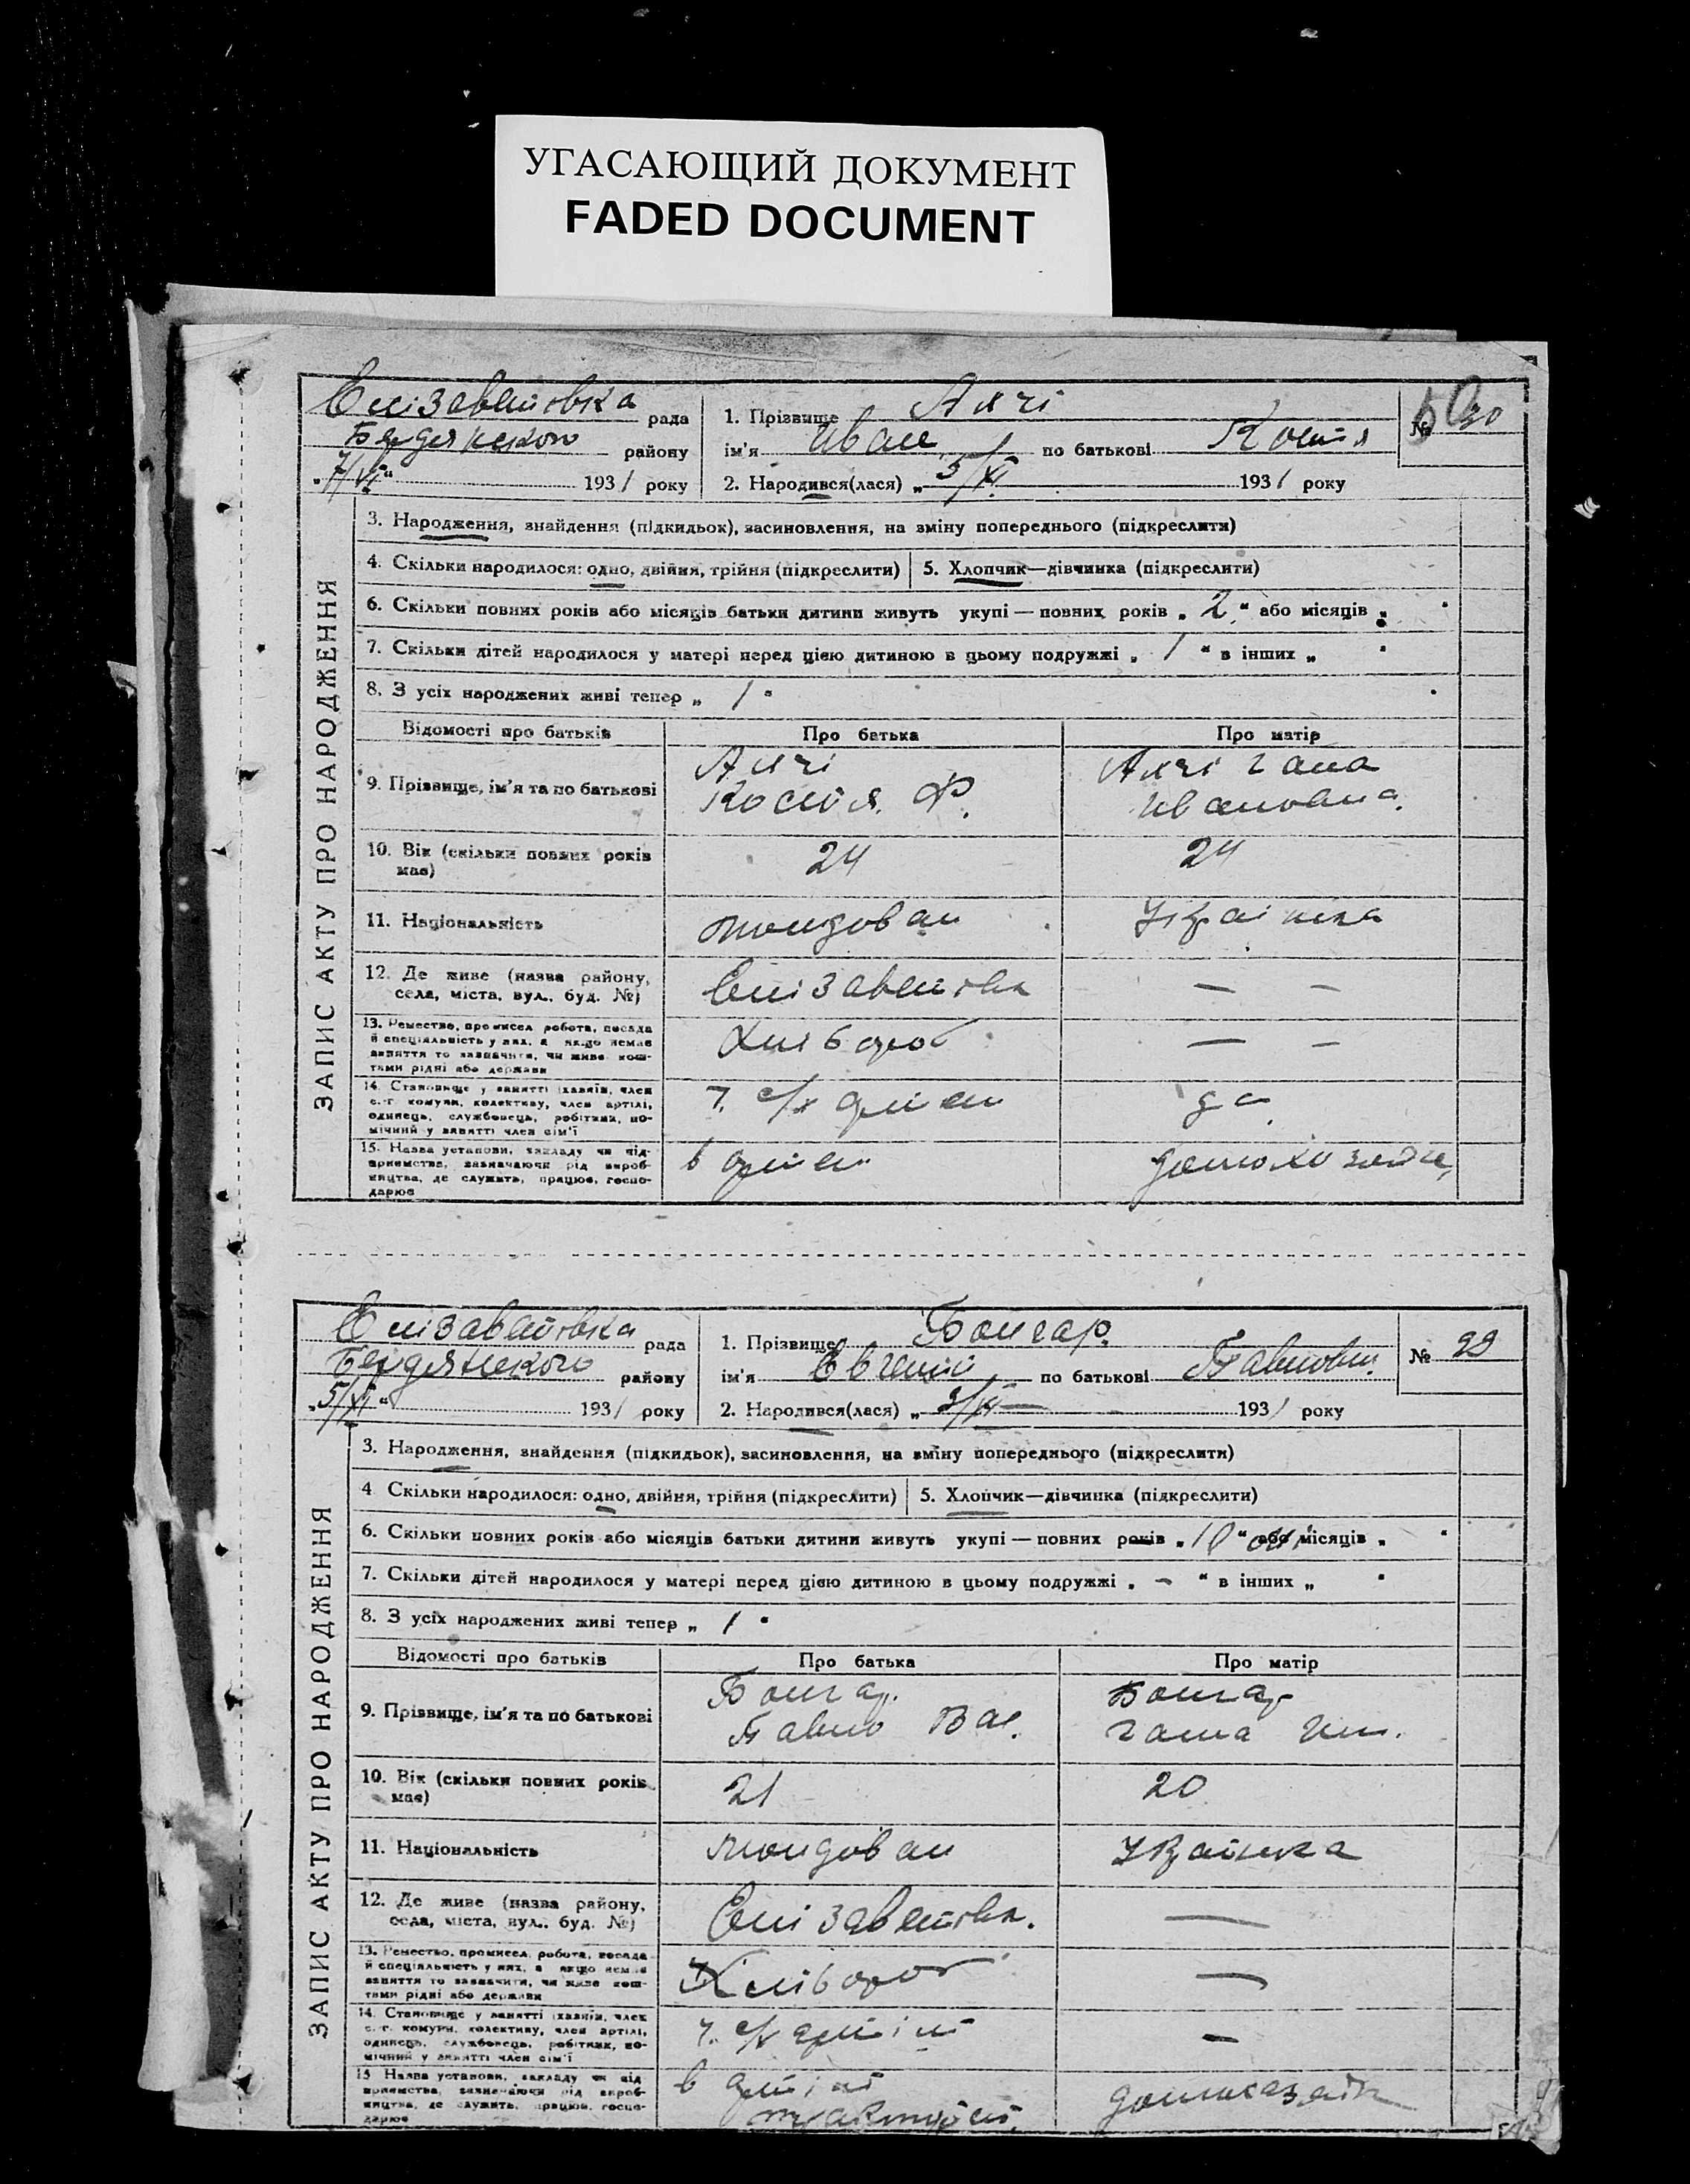 УГАСАЮЩИЙ ДОКУМЕНТ
FADED DOCUMENT
Єлізаветовка рада
Бердянського району
„7/VI“ 1931 року
1. Прізвище Алчі
ім'я Иван по батькові Костя
2. Народився(лася) „5/XI 1931 року
№ 30
ЗАПИС АКТУ ПРО НАРОДЖЕННЯ
3. Народження, знайдення (підкидьок), засиновлення, на зміну попереднього (підкреслити)
4. Скільки народилося: одно, двійня, трійня (підкреслити) 5. Хлопчик—дівчинка (підкреслити)
6. Скільки повних років або місяців батьки дитини живуть укупі — повних років „ 2 “ або місяців „ “
7. Скільки дітей народилося у матері перед цією дитиною в цьому подружжі „ 1 “ в інших „ “
8. З усіх народжених живі тепер „ 1 “
Відомості про батьків Про батька Про матір
9. Прізвище, ім'я та по батькові
Алчі
Костя Ф.
Алчі Гана
Ивановна.
10. Вік (скільки повних років має) 24 24
11. Національність молдован Українка
12. Де живе (назва району, села, міста, вул., буд. №) Єлізаветовка — —
13. Ремество, промисел робота, посада
й спеціальність у них, а якщо немає
заняття то зазначити, чи живе кош-
тами рідні або держави
Хлібороб — —
14. Становище у занятті (хазяїн, член
с.-г. комуни, колективу, член артілі,
одинець, службовець, робітник, по-
мічний у занятті член сім'ї
Ч. с/х артели
15. Назва установи, закладу чи під-
приємства, зазначаючи рід вироб-
ництва, де служить, працює, госпо-
дарює
в артели домохозяйка
Єлізаветовка рада
Бердянського району
„5/XI“ 1931 року
1. Прізвище Болгар.
ім'я Евгений по батькові Павлович.
2. Народився(лася) „ 2/XI — 1931 року
№ 29
ЗАПИС АКТУ ПРО НАРОДЖЕННЯ
3. Народження, знайдення (підкидьок), засиновлення, на зміну попереднього (підкреслити)
4 Скільки народилося: одно, двійня, трійня (підкреслити) 5. Хлопчик—дівчинка (підкреслити)
6. Скільки повних років або місяців батьки дитини живуть укупі — повних років „ 10 “ або місяців „ “
7. Скільки дітей народилося у матері перед цією дитиною в цьому подружжі „ — “ в інших „ “
8. З усіх народжених живі тепер „ 1 “
Відомості про батьків Про батька Про матір
9. Прізвище, ім'я та по батькові
Болгар.
Павло Вас.
Болгар
Гана
10. Вік (скільки повних років має) 21 20
11. Національність молдован Українка
12. Де живе (назва району, села, міста, вул., буд. №) Єлізаветовка. —
13. Ремество, промисел, робота, посада
й спеціальність у них, а якщо немає
заняття то зазначити, чи живе кош-
тами рідні або держави
Хлібороб —
14. Становище у занятті (хазяїн, член
с.-г. комуни, колективу, член артілі,
одинець, службовець, робітник, по-
мічний у занятті член сім'ї
ч. с/х артілі —
15 Назва установи, закладу чи під
приємства, зазначаючи рід вироб-
ництва, де служить, працює, госпо-
дарює
в артілі
домохазяйк